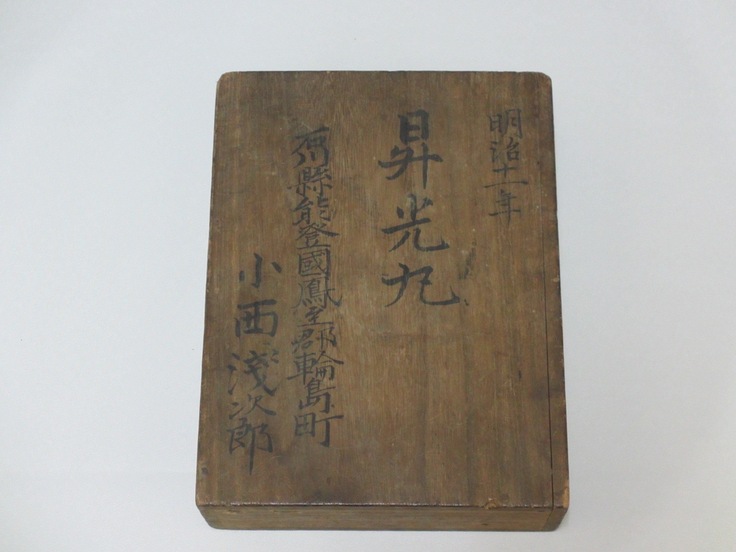 明治十一年
昇光丸
石川縣能登國鳳至郡輪島町
小西淺次郎